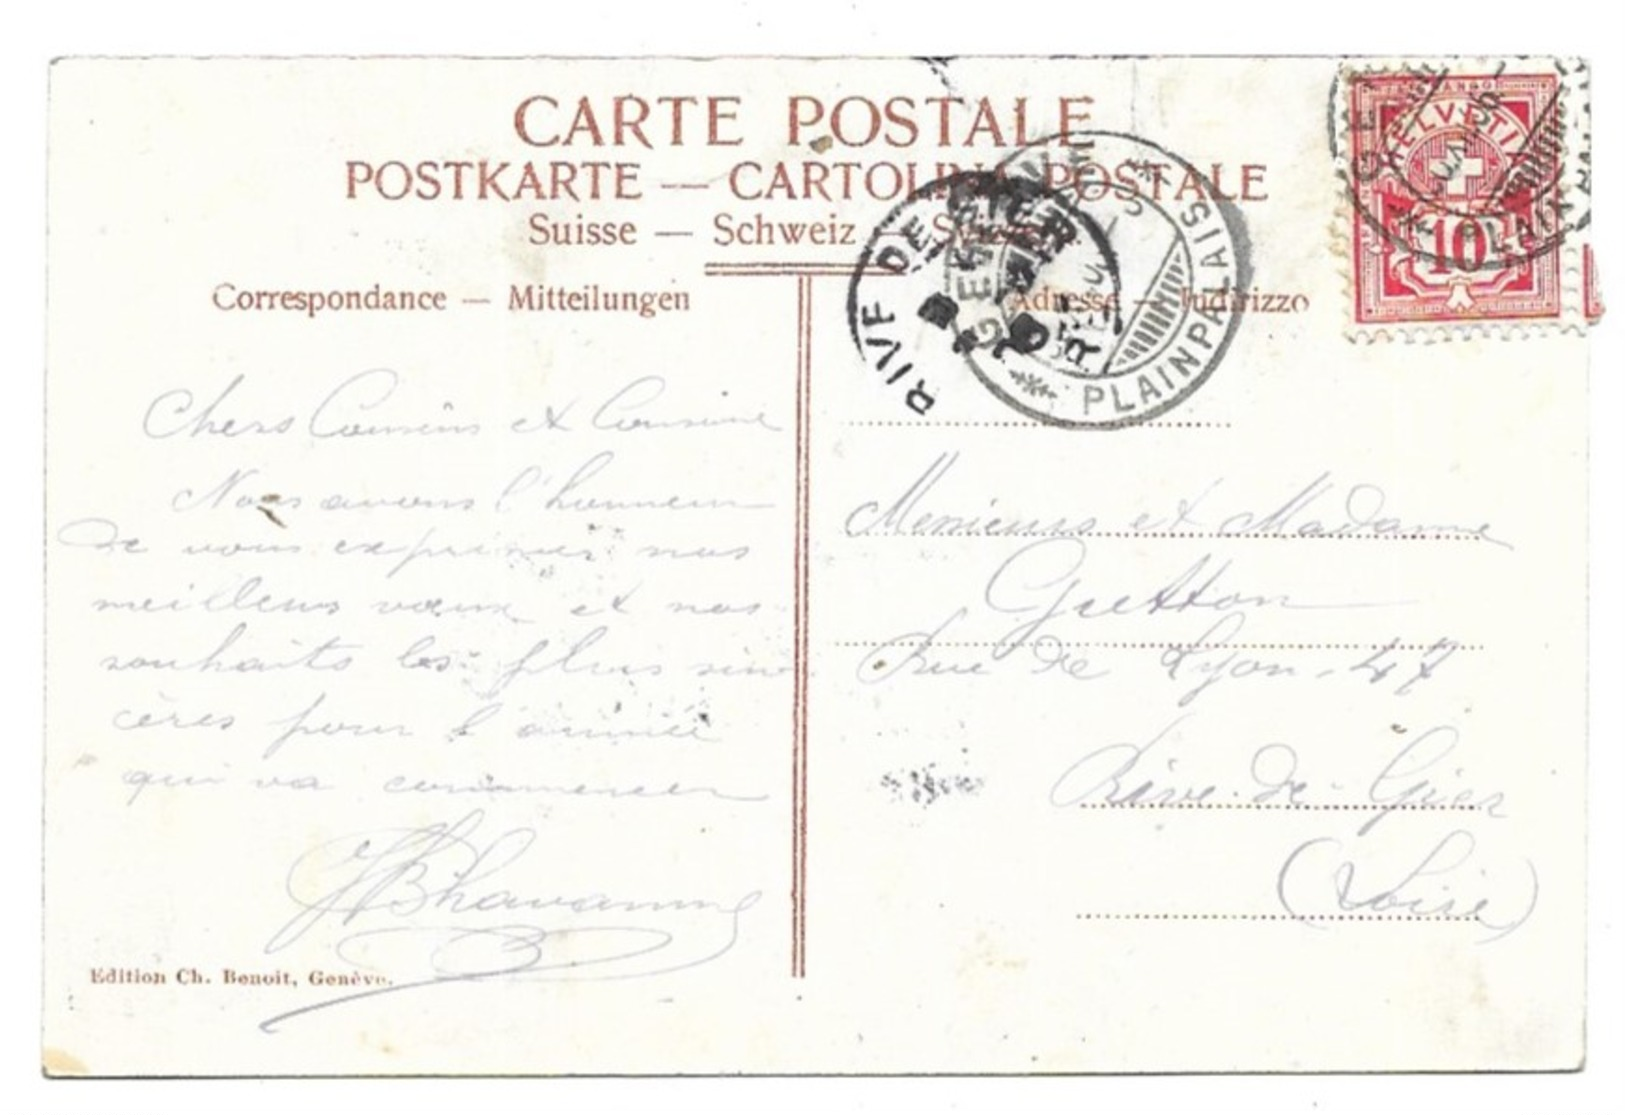 CARTE POSTALE
POSTKARTE — CARTOLINA POSTALE
Suisse — Schweiz — Svizzera
Correspondance — Mitteilungen
Adresse — Indirizzo
HELVETIA
10
GENÈVE
PLAINPALAIS
RIVE DE GIER
Chers Cousins et Cousine
Nous avons l'honneur
de vous exprimer nos
meilleurs vœux et nos
souhaits les plus sin
cères pour l'année
qui va commencer
Edition Ch. Benoit, Genève.
Messieurs et Madame
Gretton
Rue de Lyon. 47
Rive-de-Gier
(Loire)